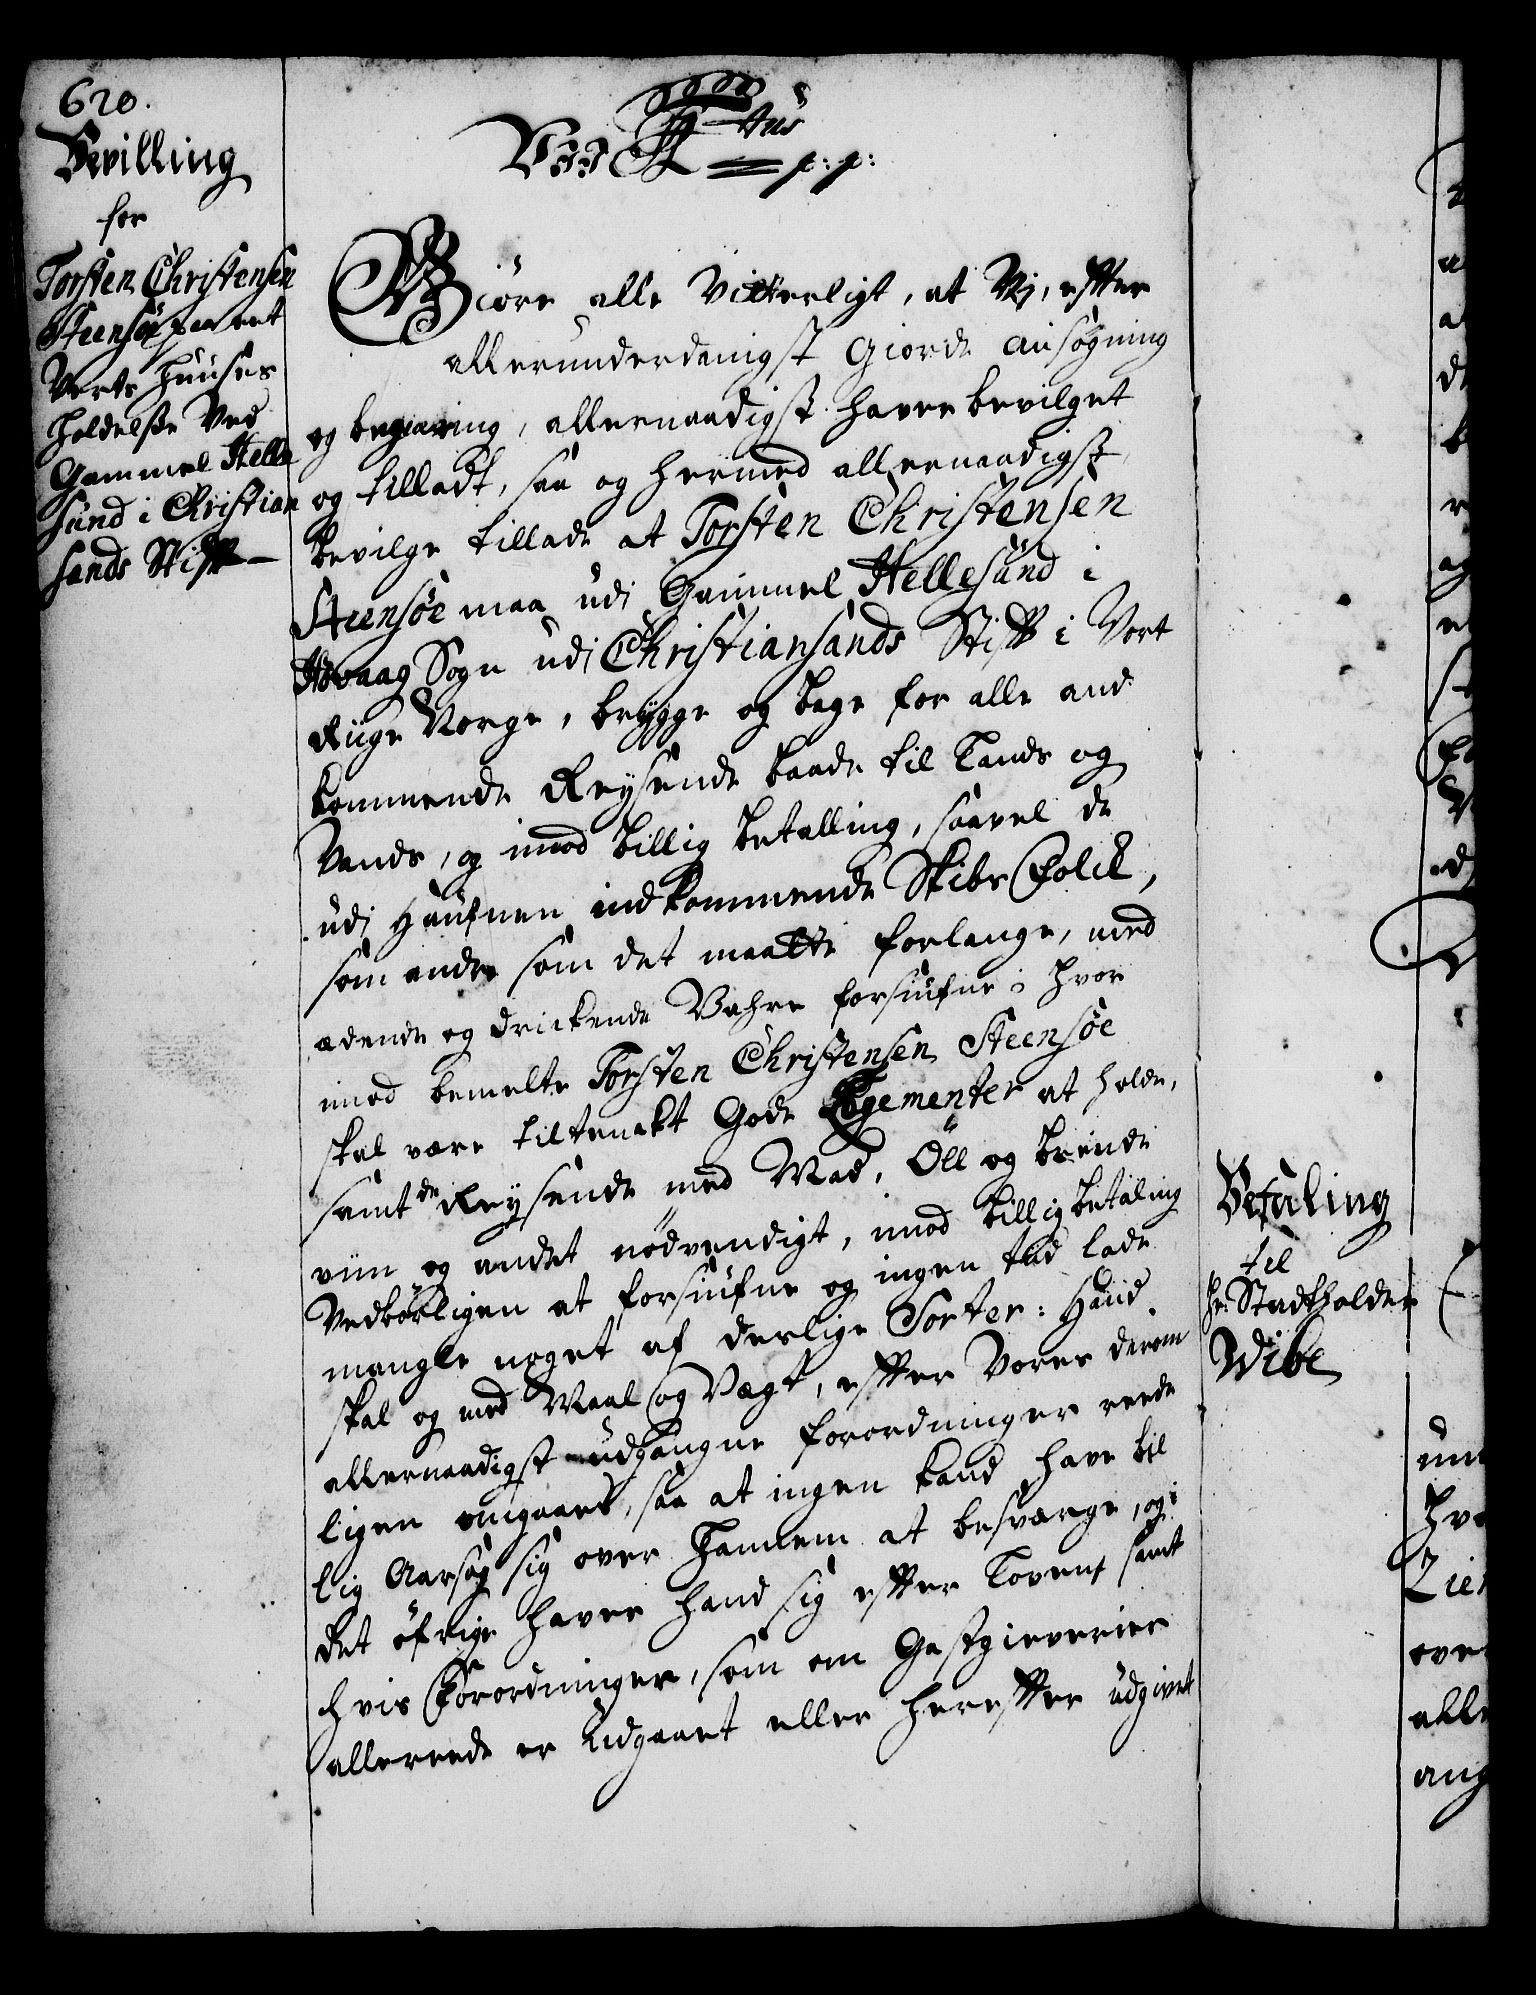 620.
Bevilling
for
Torsten Christensen
Steensöe paa et
Verts Huuses
holdelse Ved
Gammel Helle
sund i Christian
sands Stift
Vii F 4tus p: p:
Giöre alle Vitterligt, at Vi, efter
allerunderdanigst Giorde ansøgning
og begiæring, allernaadigst haver bevilget
og tilladt, saa og hermed allernaadigst
bevilge tillade at Torsten Christensen
Steensøe maa udi Gammel Hellesund i
Høvaag Sogn udi Christiansands Stift i Vort
Riige Norge, brygge og bage for alle and
kommende Reysende baade til Lands og
Vands, og imod billig betalling, saavel de
udi Haufnen indkommende Skibs Folck,
som andre som det maatte forlange, med
ædende og drickende Vahre forsiufne; hvor
imod bemelte Torsten Christensen Steensøe
skal være tiltenckt Gode Logementer at holde,
samt de Reysende med Mad, Öll og brende
viin og andet nödvendigt, imod billig betaling
Vedbörligen at forsiufne og ingen tiid lade
mangle noget af derlige Sorter: Hand
skal og med Maal og Vægt, efter Vores derom
allernaadigst udgangne forordninger reede
ligen omgaaes, saa at ingen kand have bil
lig Aarsag sig over hannem at besværge, og i
det öfrige haver hand sig efter Loven samt
hvis Forordninger, som om Gestgieverier
allereede er Udgaaet eller herefter udgivet
Befaling
til
Hr: Stadtholder
Wibe